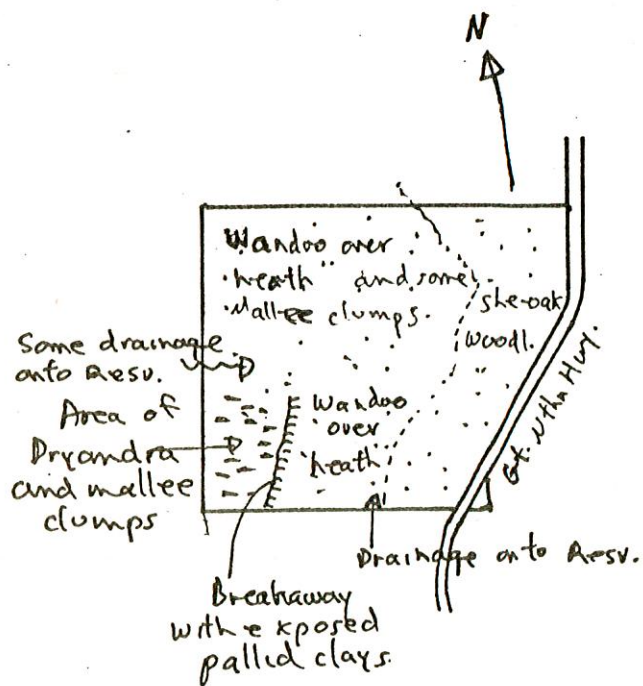 N
Wandoo over
heath and some
Mallee clumps.
she-oak
woodl.
Gt. Nthn Hwy.
Some drainage
onto Resv.
Area of
Dryandra
and mallee
clumps
Wandoo
over
heath
Drainage onto Resv.
Breakaway
with exposed
pallid clays.